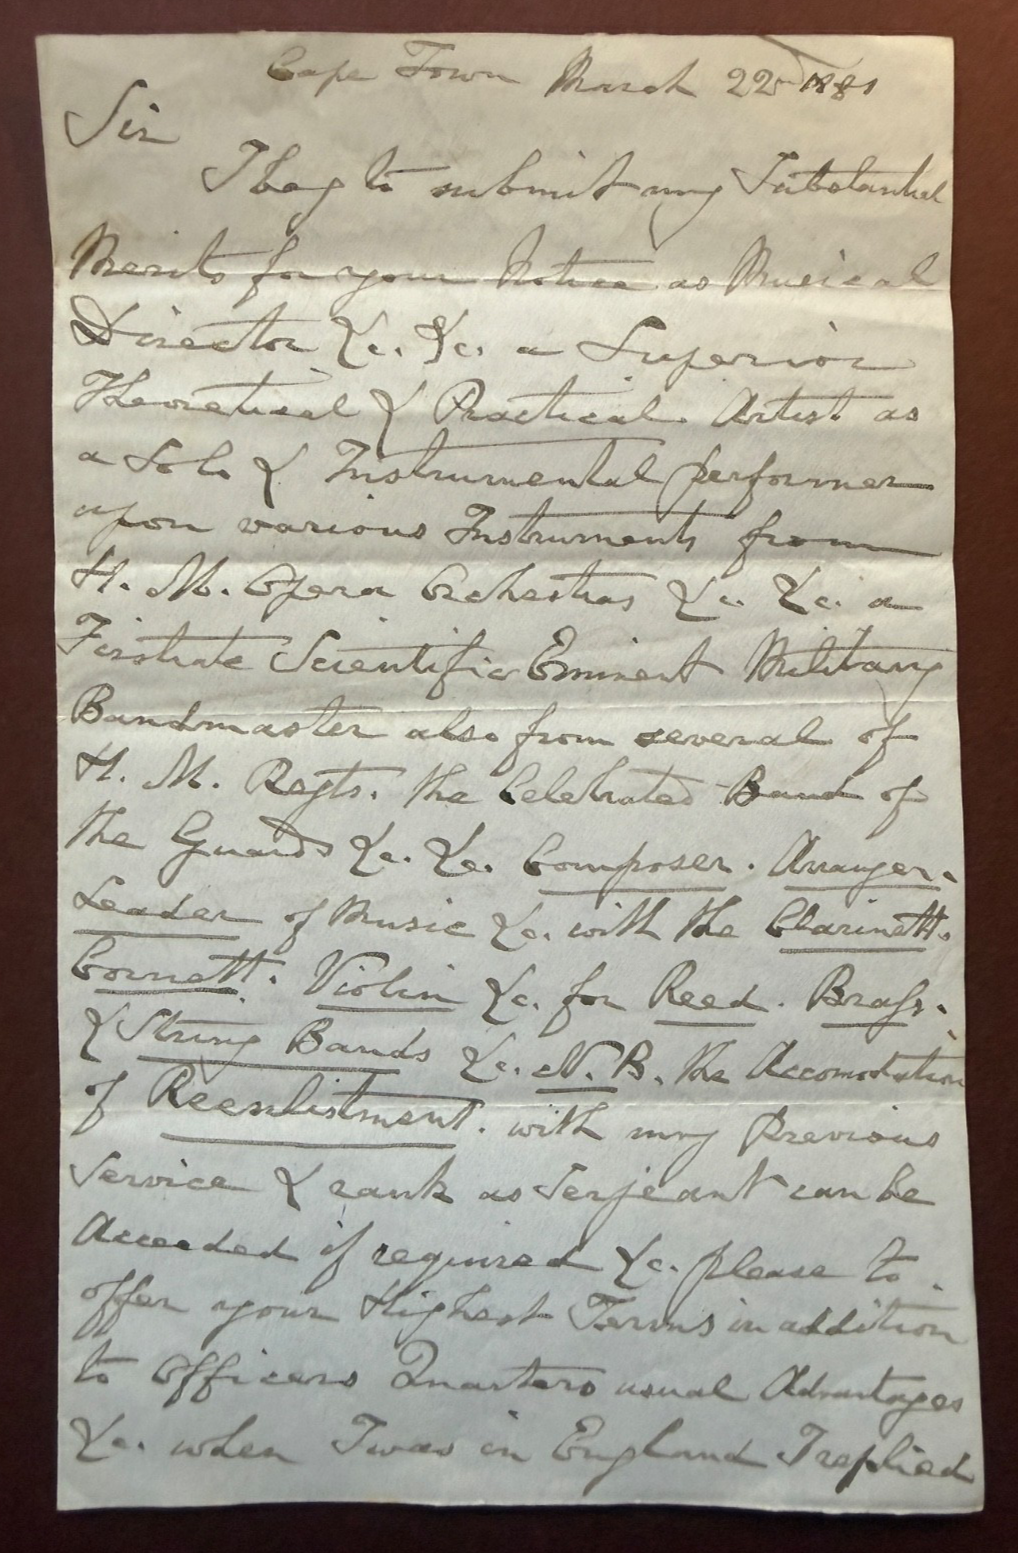 Cape Town March 22nd 1881
Sir
I beg to submit my Substantial
Merits for your Notice as Musical
Director &c. &c. a Superior
Theoretical & Practical Artist as
a Solo & Instrumental performer
upon various Instruments from
H. M. Opera Orchestras &c. &c. a
Firstrate Scientific Eminent Military
Bandmaster also from several of
H. M. Regts. the Celebrated Band of
the Guards &c. &c. Composer. Arranger.
Leader of Music &c. with the Clarinett.
Cornett. Violin &c. for Reed. Brass.
& String Bands &c. N. B. the Accomodation
of Reenlistment. with my Previous
Service & rank as Serjeant can be
Acceeded if required &c. please to
offer your Highest Terms in addition
to Officers Quarters usual Advantages
&c. when I was in England I replied